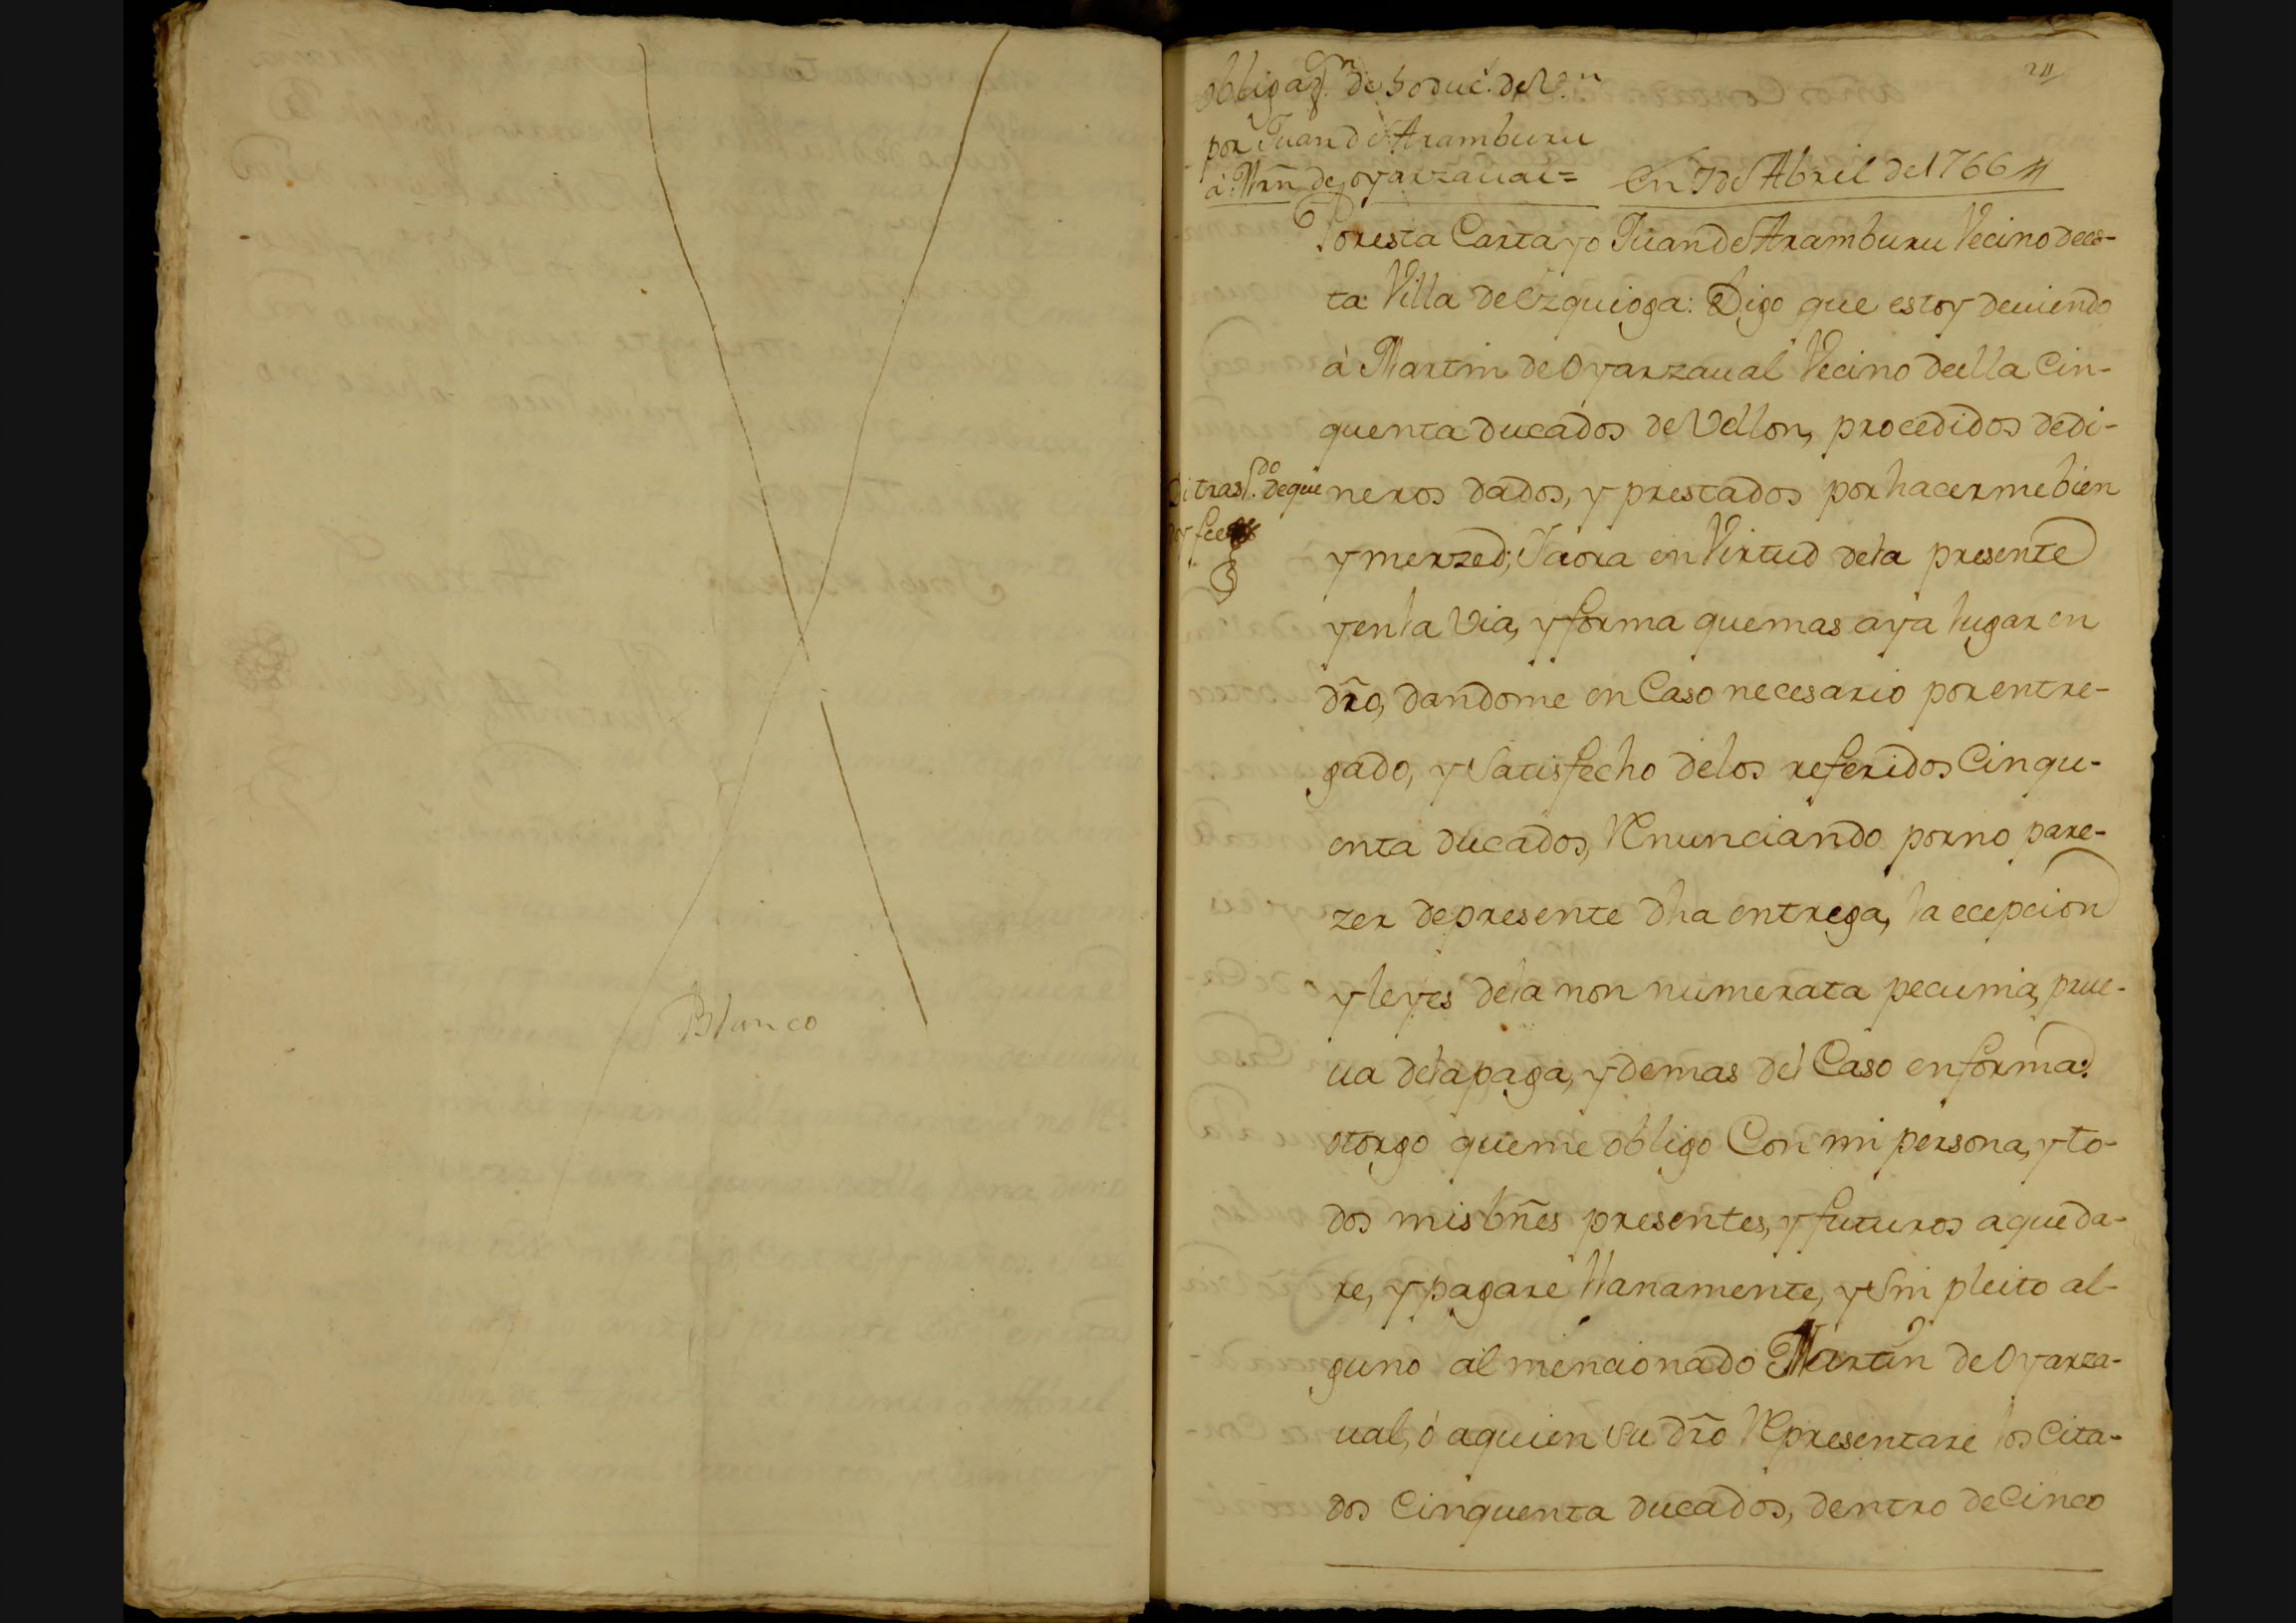 Blanco
obligaz.n de 50 duc.s de V.n
por Juan de Aramburu
à Mrñ de oyarzaual=
en 7 de Abril de 1766
Por esta Carta yo Juan de Aramburu Vecino de es-
ta Villa de Ezquioga: Digo que estoy deuiendo
à Martin de Oyarzaual Vecino de ella Cin-
quenta ducados de Vellon, procedidos de di-
Di trasl.do de que
doy fee
neros dados, y prestados por hacerme bien
y merzed; Y aora en Virtud de la presente
y en la via, y forma que mas aya lugar en
dr̃o, dandome en Caso necesario por entre-
gado, y Satisfecho de los referidos Cinqu-
enta ducados, Renunciando por no pare-
zer de presente dha entrega, la ecepcion
y leyes de la non numerata pecunia, prue-
ua de la paga, y demas del Caso en forma:
otorgo que me obligo Con mi persona, y to-
dos mis bñes presentes, y futuros a que da-
re, y pagare llanamente, y Sin pleito al-
guno al mencionado Martin de Oyarza-
ual, ò a quien su dr̃o Representare los Cita-
dos Cinquenta ducados, dentro de Cinco